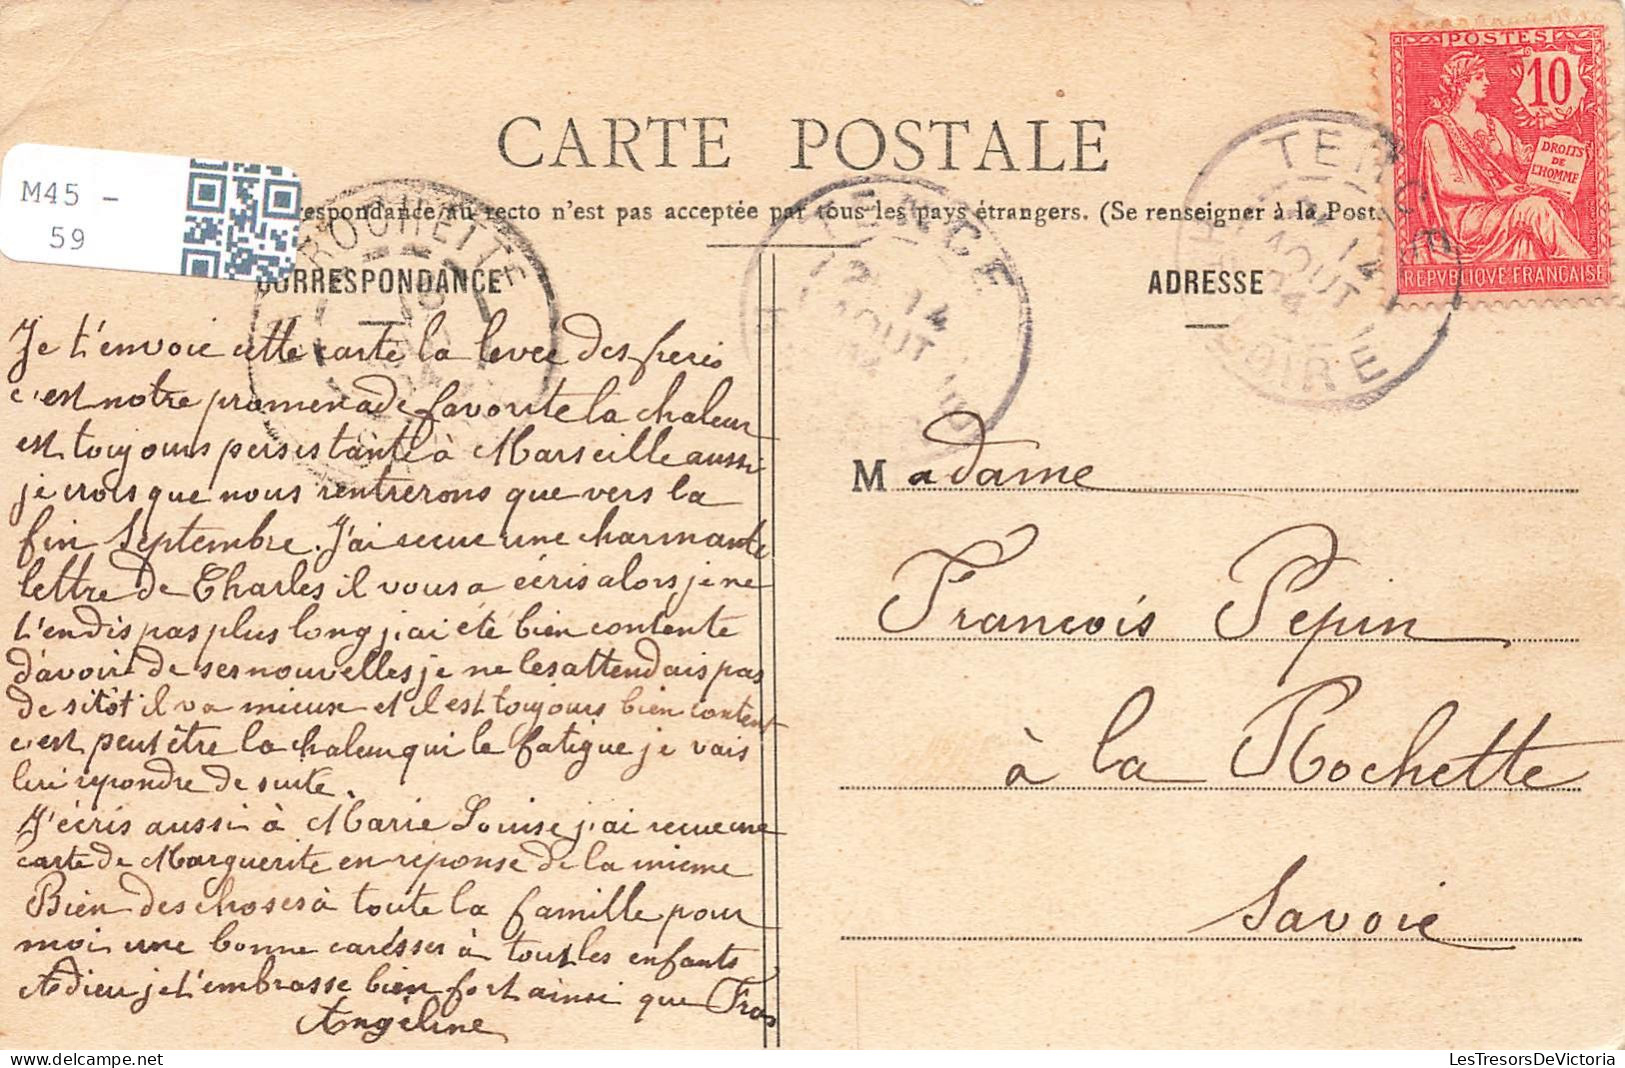 POSTES
10
DROITS
DE
L'HOMME
REPVBLIQVE FRANÇAISE
CARTE POSTALE
M45 -
59
respondance au recto n'est pas acceptée par tous les pays étrangers. (Se renseigner à la Post
CORRESPONDANCE
ADRESSE
ROCHETTE
TENCE
14
AOUT
TENCE
14
AOUT
04
LOIRE
Je t'envoie cette carte la levee des freres
c'est notre promenade favorite la chaleur
est toujours persistante à Marseille aussi
je crois que nous rentrerons que vers la
fin Septembre. J'ai recue une charmante
lettre de Charles il vous a écris alors je ne
t'en dis pas plus long j'ai été bien contente
d'avoir de ses nouvelles je ne les attendais pas
de sitôt il va mieux et il est toujours bien content
c'est peut être la chaleur qui le fatigue je vais
lui repondre de suite.
J'écris aussi à Marie Louise j'ai recue une
carte de Marguerite en reponse de la mieme
Bien des choses à toute la famille pour
moi une bonne caresser à tous les enfants
Adieu je t'embrasse bien fort ainsi que Fras
Angéline
Madame
François Pepin
à la Rochette
Savoie
LesTresorsDeVictoria